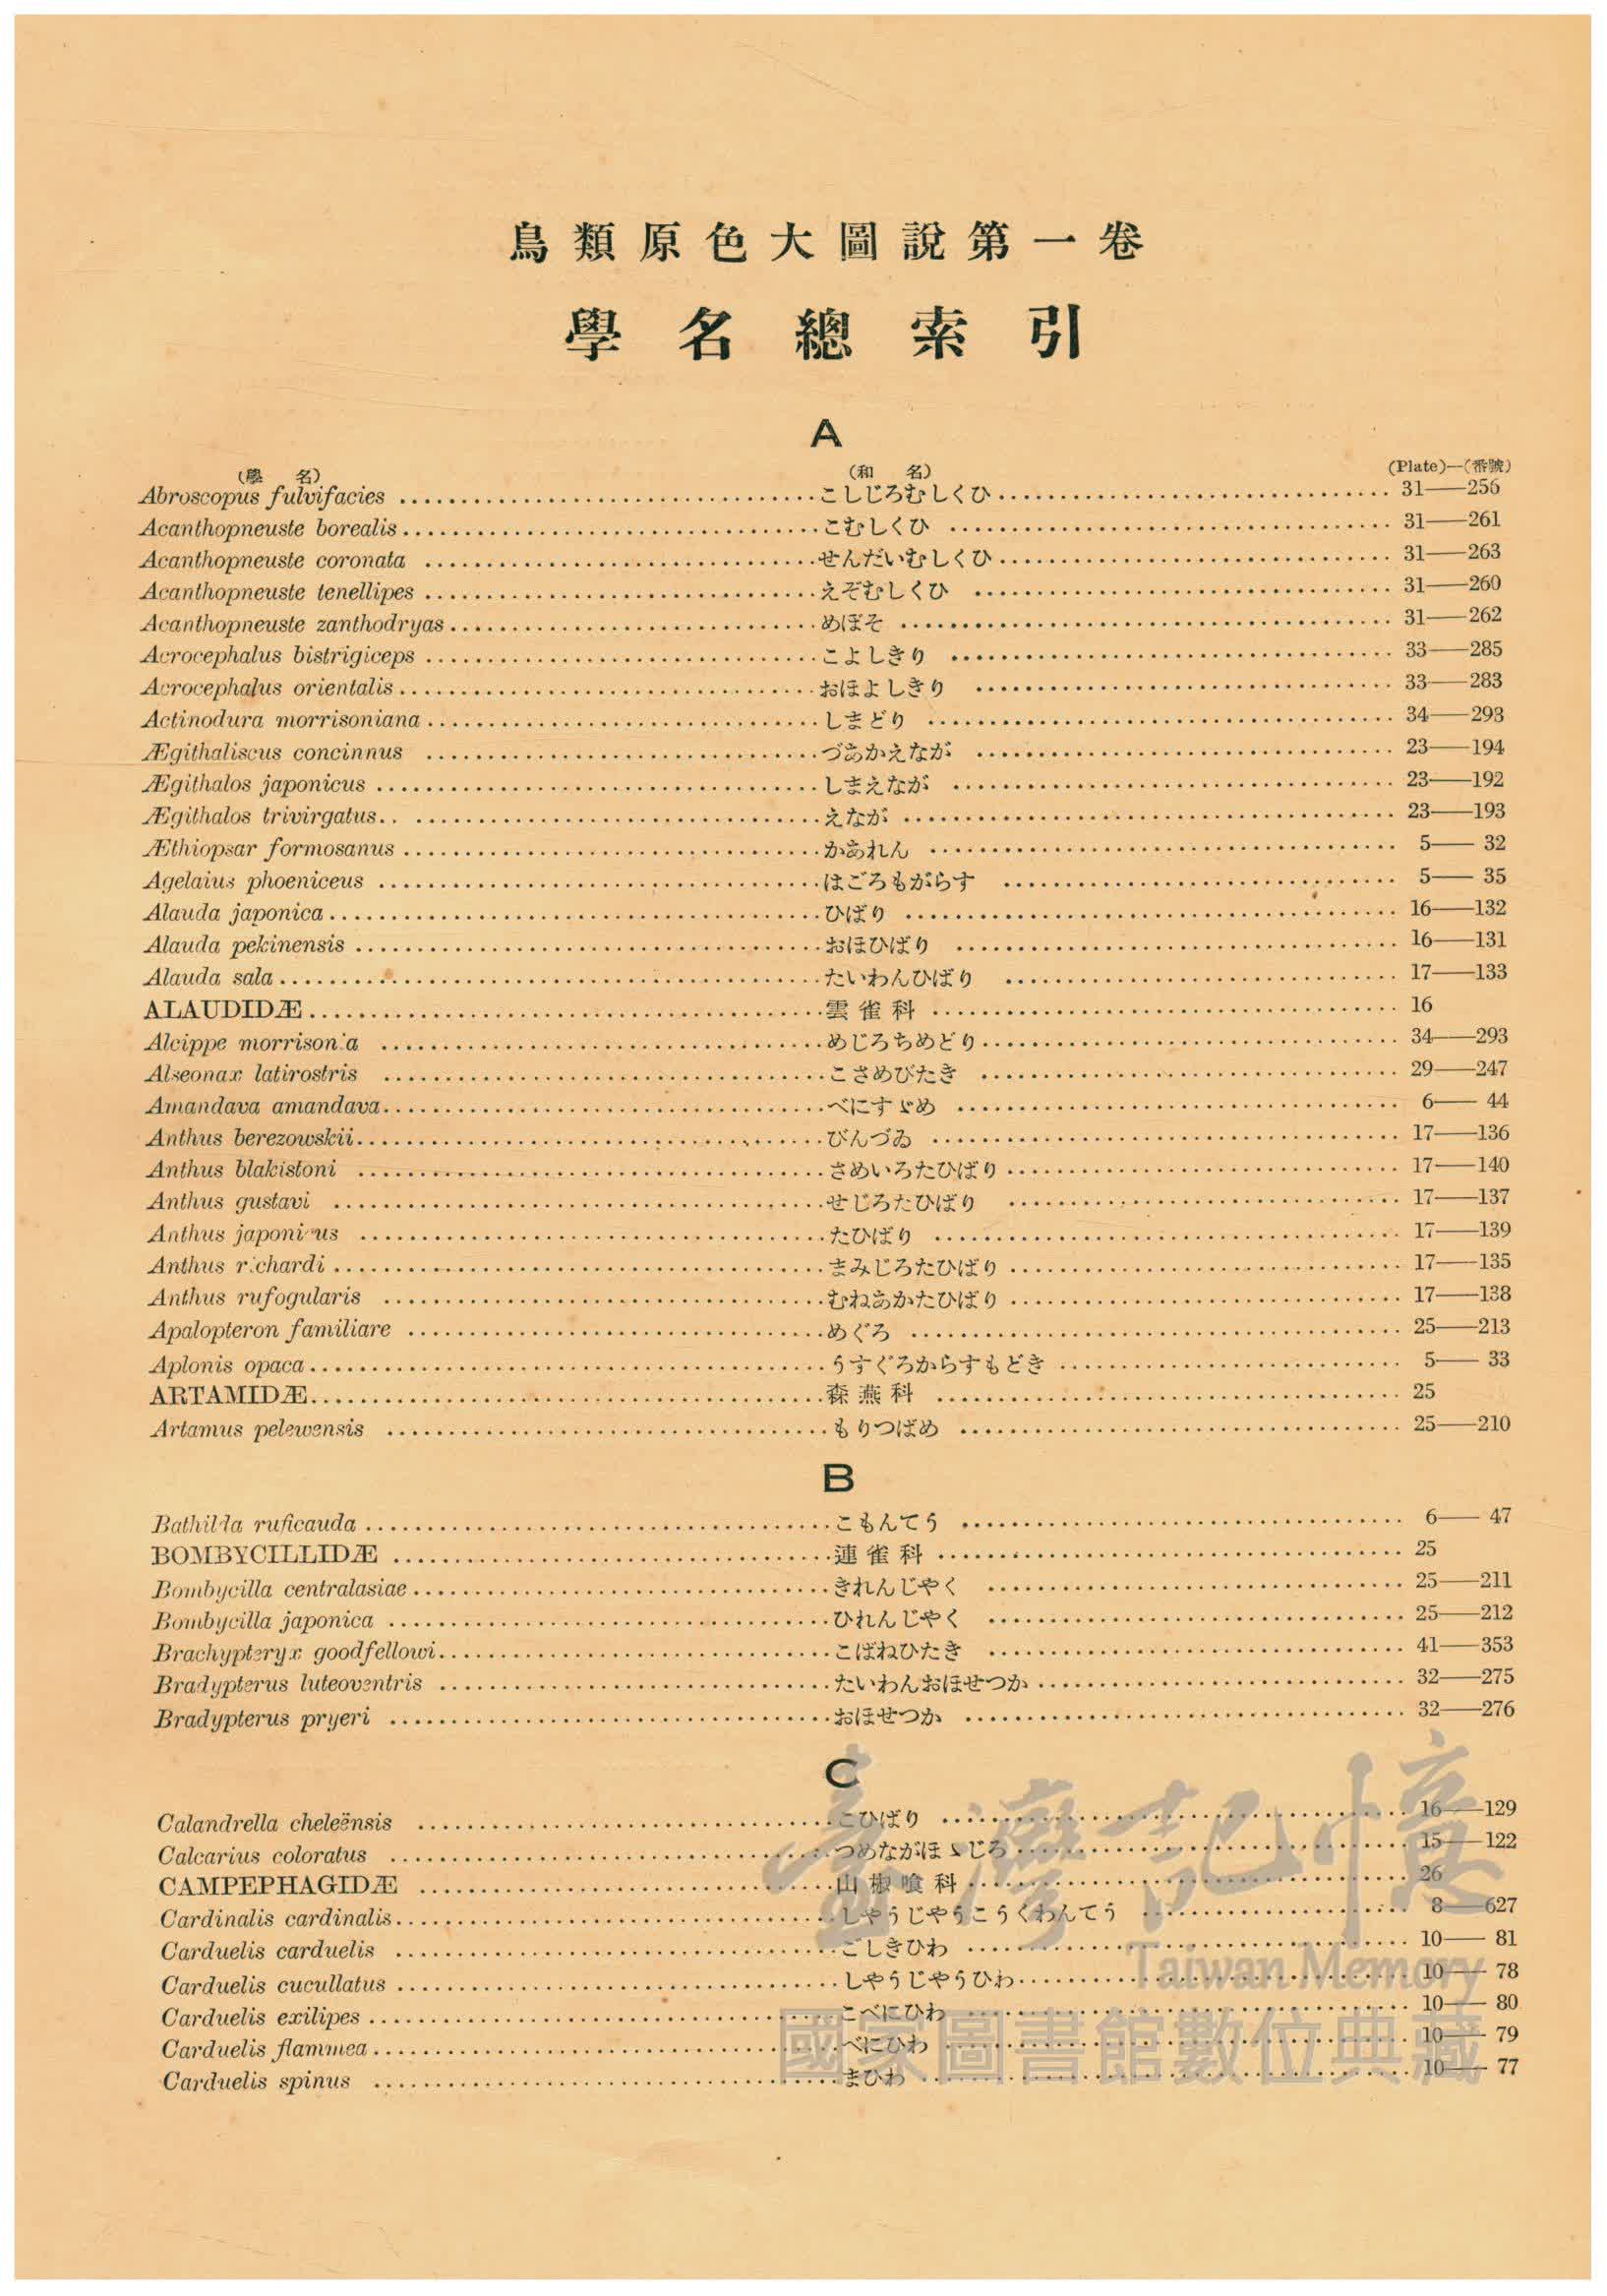 鳥類原色大圖說第一卷
學名總索引
A
(學名) (和名) (Plate)—(番號)
Abroscopus fulvifacies こしじろむしくひ 31——256
Acanthopneuste borealis こむしくひ 31——261
Acanthopneuste coronata せんだいむしくひ 31——263
Acanthopneuste tenellipes えぞむしくひ 31——260
Acanthopneuste zanthodryas めぼそ 31——262
Acrocephalus bistrigiceps こよしきり 33——285
Acrocephalus orientalis おほよしきり 33——283
Actinodura morrisoniana しまどり 34——293
Ægithaliscus concinnus づあかえなが 23——194
Ægithalos japonicus しまえなが 23——192
Ægithalos trivirgatus えなが 23——193
Æthiopsar formosanus かあれん 5——32
Agelaius phoeniceus はごろもがらす 5——35
Alauda japonica ひばり 16——132
Alauda pekinensis おほひばり 16——131
Alauda sala たいわんひばり 17——133
ALAUDIDÆ 雲雀科 16
Alcippe morrisonia めじろちめどり 34——293
Alseonax latirostris こさめびたき 29——247
Amandava amandava べにすゞめ 6——44
Anthus berezowskii びんづゐ 17——136
Anthus blakistoni さめいろたひばり 17——140
Anthus gustavi せじろたひばり 17——137
Anthus japonicus たひばり 17——139
Anthus richardi まみじろたひばり 17——135
Anthus rufogularis むねあかたひばり 17——138
Apalopteron familiare めぐろ 25——213
Aplonis opaca うすぐろからすもどき 5——33
ARTAMIDÆ 森燕科 25
Artamus pelewensis もりつばめ 25——210
B
Bathilda ruficauda こもんてう 6——47
BOMBYCILLIDÆ 連雀科 25
Bombycilla centralasiae きれんじやく 25——211
Bombycilla japonica ひれんじやく 25——212
Brachypteryx goodfellowi こばねひたき 41——353
Bradypterus luteoventris たいわんおほせつか 32——275
Bradypterus pryeri おほせつか 32——276
C
Calandrella cheleënsis こひばり 16——129
Calcarius coloratus つめながほゝじろ 15——122
CAMPEPHAGIDÆ 山椒喰科 26
Cardinalis cardinalis しやうじやうこうくわんてう 8——627
Carduelis carduelis ごしきひわ 10——81
Carduelis cucullatus しやうじやうひわ 10——78
Carduelis exilipes こべにひわ 10——80
Carduelis flammea べにひわ 10——79
Carduelis spinus まひわ 10——77
臺灣記憶
Taiwan Memory
國家圖書館數位典藏